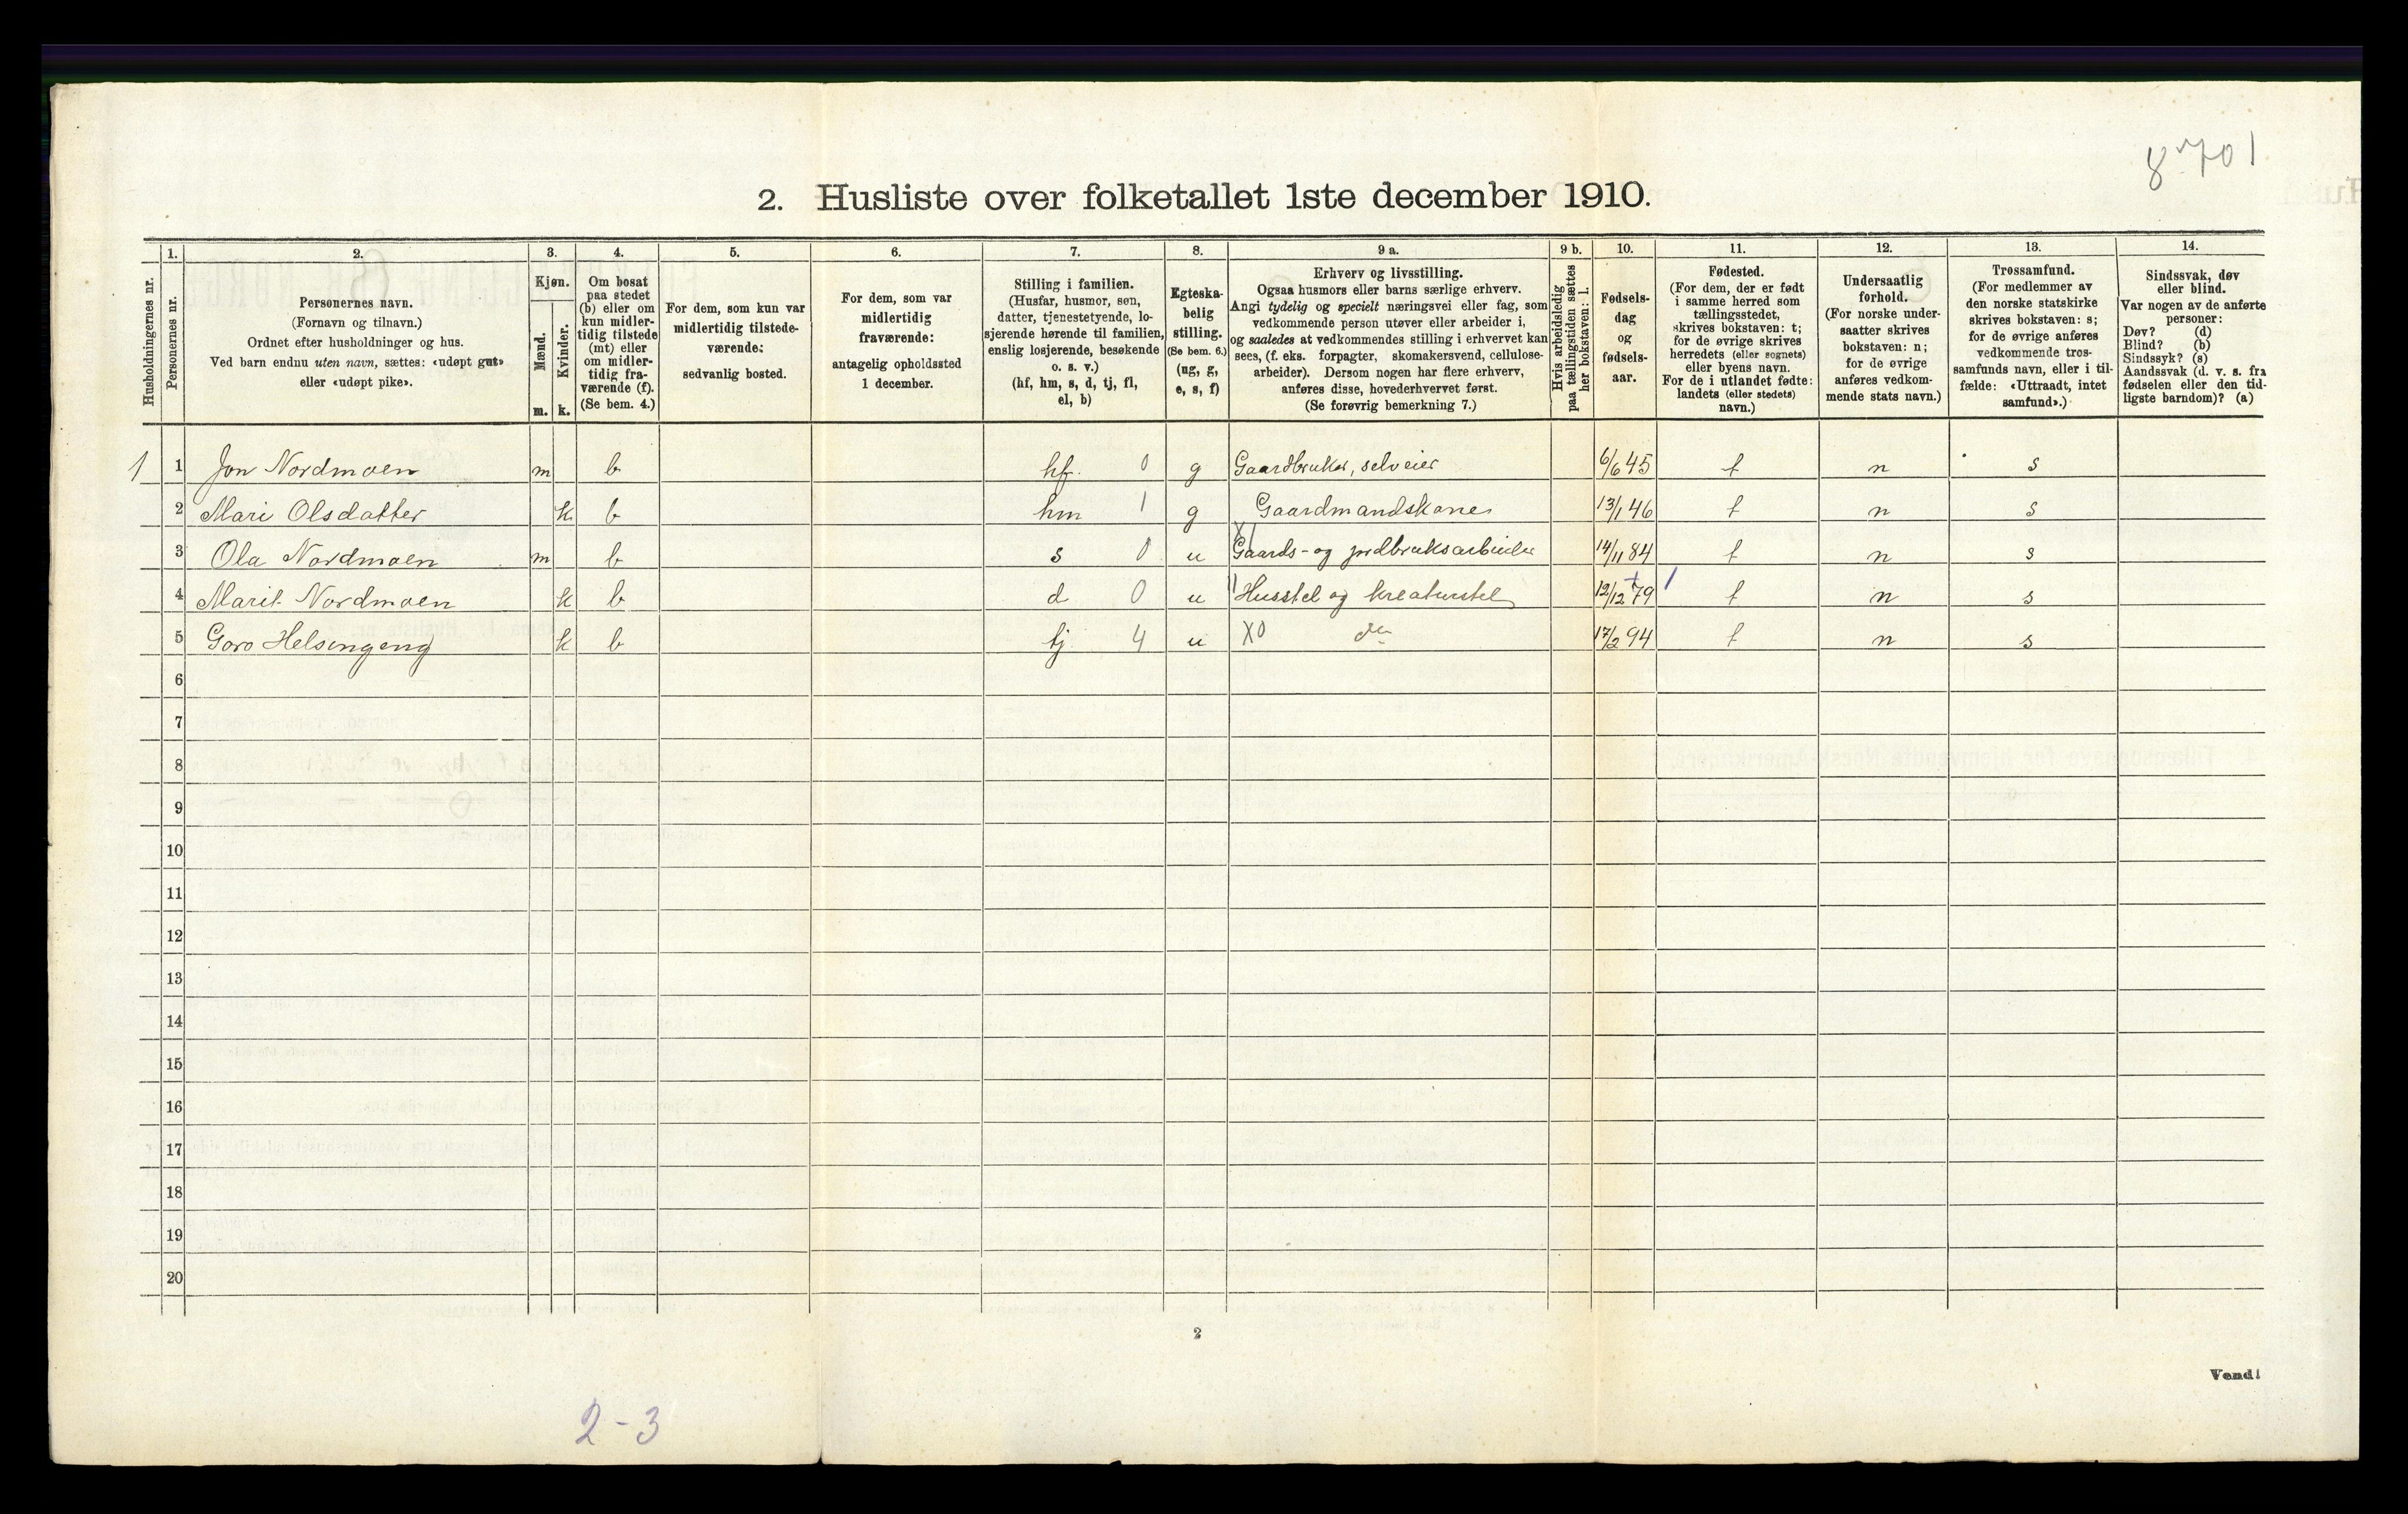 8 701
2. Husliste over folketallet 1ste december 1910.
Husholdningernes nr.
1.
Personernes nr.
2.
Personernes navn.
(Fornavn og tilnavn.)
Ordnet efter husholdninger og hus.
Ved barn endnu uten navn, sættes: «udøpt gut»
eller «udøpt pike».
3.
Kjøn.
Mænd.
Kvinder.
m. k.
4.
Om bosat
paa stedet
(b) eller om
kun midler-
tidig tilstede
(mt) eller
om midler-
tidig fra-
værende (f).
(Se bem. 4.)
5.
For dem, som kun var
midlertidig tilstede-
værende:
sedvanlig bosted.
6.
For dem, som var
midlertidig
fraværende:
antagelig opholdssted
1 december.
7.
Stilling i familien.
(Husfar, husmor, søn,
datter, tjenestetyende, lo-
sjerende hørende til familien,
enslig losjerende, besøkende
o. s. v.)
(hf, hm, s, d, tj, fl,
el, b)
8.
Egteska-
belig
stilling.
(Se bem. 6.)
(ug, g,
e, s, f)
9 a.
Erhverv og livsstilling.
Ogsaa husmors eller barns særlige erhverv.
Angi tydelig og specielt næringsvei eller fag, som
vedkommende person utøver eller arbeider i,
og saaledes at vedkommendes stilling i erhvervet kan
sees, (f. eks. forpagter, skomakersvend, cellulose-
arbeider). Dersom nogen har flere erhverv,
anføres disse, hovederhvervet først.
(Se forøvrig bemerkning 7.)
9 b.
Hvis arbeidsledig
paa tællingstiden sættes
her bokstaven: l.
10.
Fødsels-
dag
og
fødsels-
aar.
11.
Fødested.
(For dem, der er født
i samme herred som
tællingsstedet,
skrives bokstaven: t;
for de øvrige skrives
herredets (eller sognets)
eller byens navn.
For de i utlandet fødte:
landets (eller stedets)
navn.)
12.
Undersaatlig
forhold.
(For norske under-
saatter skrives
bokstaven: n;
for de øvrige
anføres vedkom-
mende stats navn.)
13.
Trossamfund.
(For medlemmer av
den norske statskirke
skrives bokstaven: s;
for de øvrige anføres
vedkommende tros-
samfunds navn, eller i til-
fælde: «Uttraadt, intet
samfund».)
14.
Sindssvak, døv
eller blind.
Var nogen av de anførte
personer:
Døv? (d)
Blind? (b)
Sindssyk? (s)
Aandssvak (d. v. s. fra
fødselen eller den tid-
ligste barndom)? (a)
1 1 Jon Nordmoen m b hf. 0 g Gaardbruker, selveier 6/6 45 t n s
2 Mari Olsdatter k b hm 1 g Gaardmandskone 13/1 46 t n s
3 Ola Nordmoen m b s 0 u Gaards- og jordbruksarbeider 14/11 84 t n s
4 Marit Nordmoen k b d 0 u Husstel og kreaturstel 12/12 79 t n s
5 Goro Helsingeng k b tj 4 u X0 do 17/2 94 t n s
6
7
8
9
10
11
12
13
14
15
16
17
18
19
20
2
Vend!
2-3